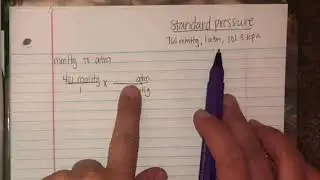 Standard pressure
760 mmHg, 1 atm, 101.3 kpa
mmHg to atm
mmHg x atm
1